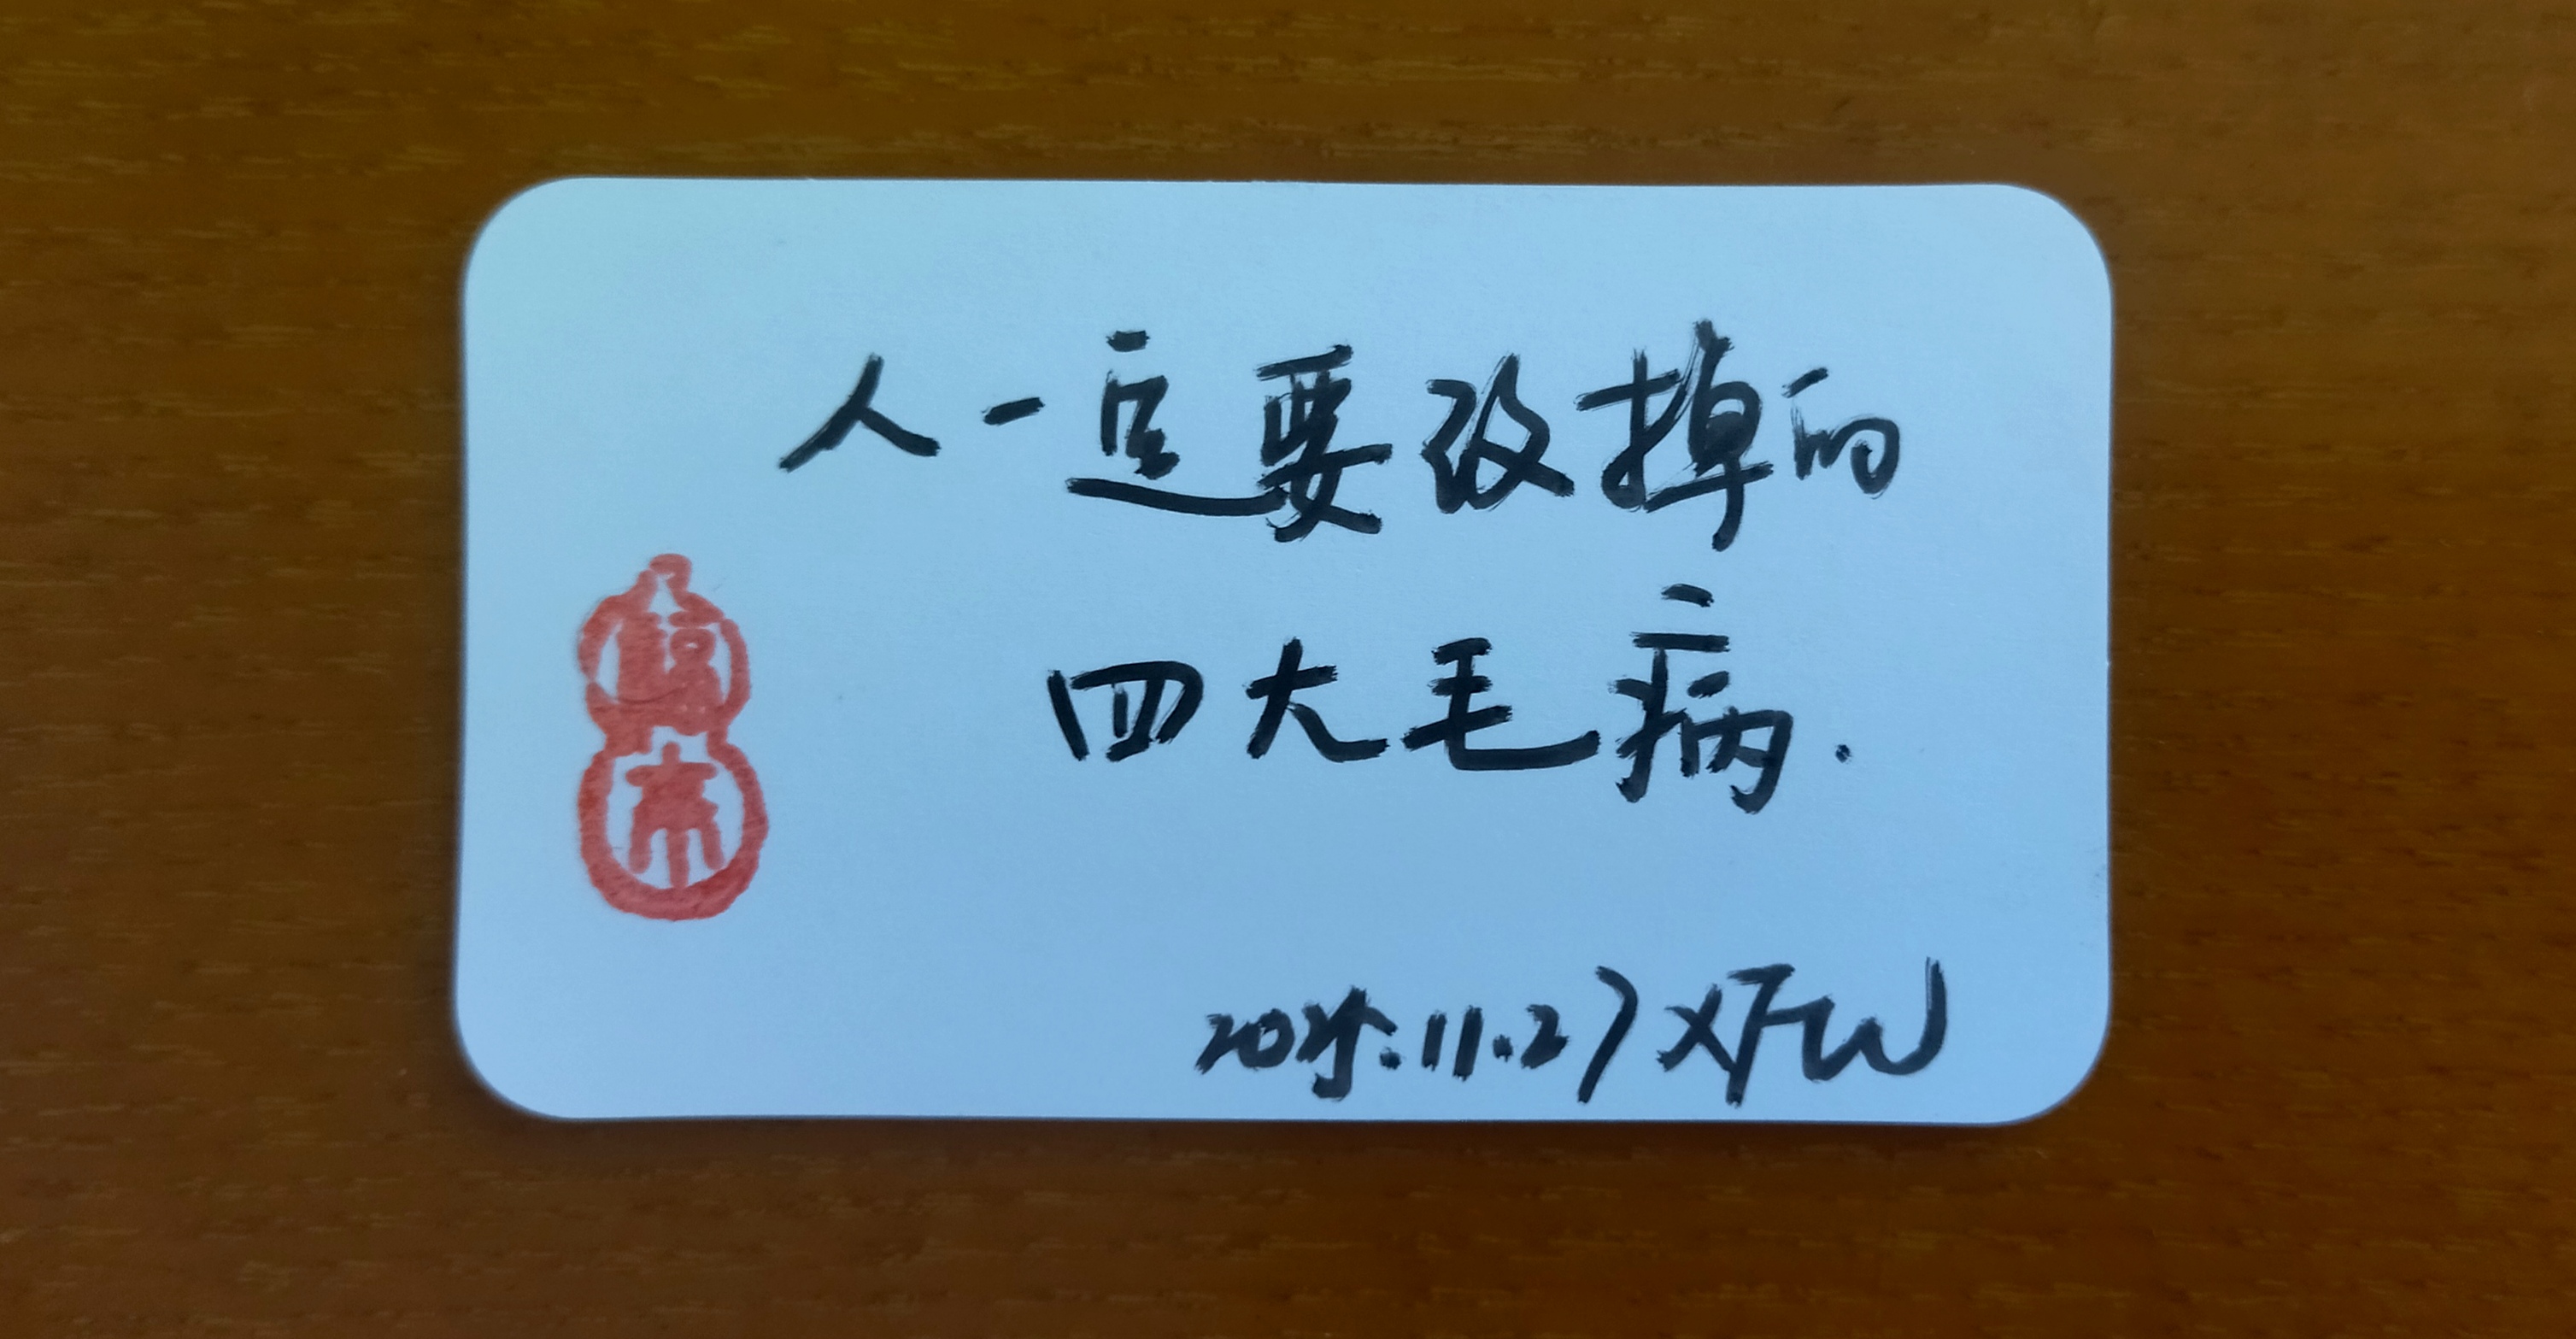 人一定要改掉的
四大毛病.
2025.11.27 XFW